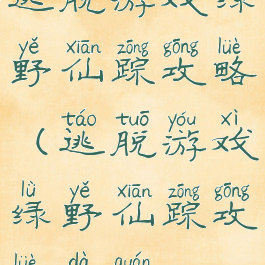 逃脱游戏绿
yě xiān zōng gōng lüè
野仙踪攻略
táo tuō yóu xì
（逃脱游戏
lǜ yě xiān zōng gōng
绿野仙踪攻
lüè dà quán